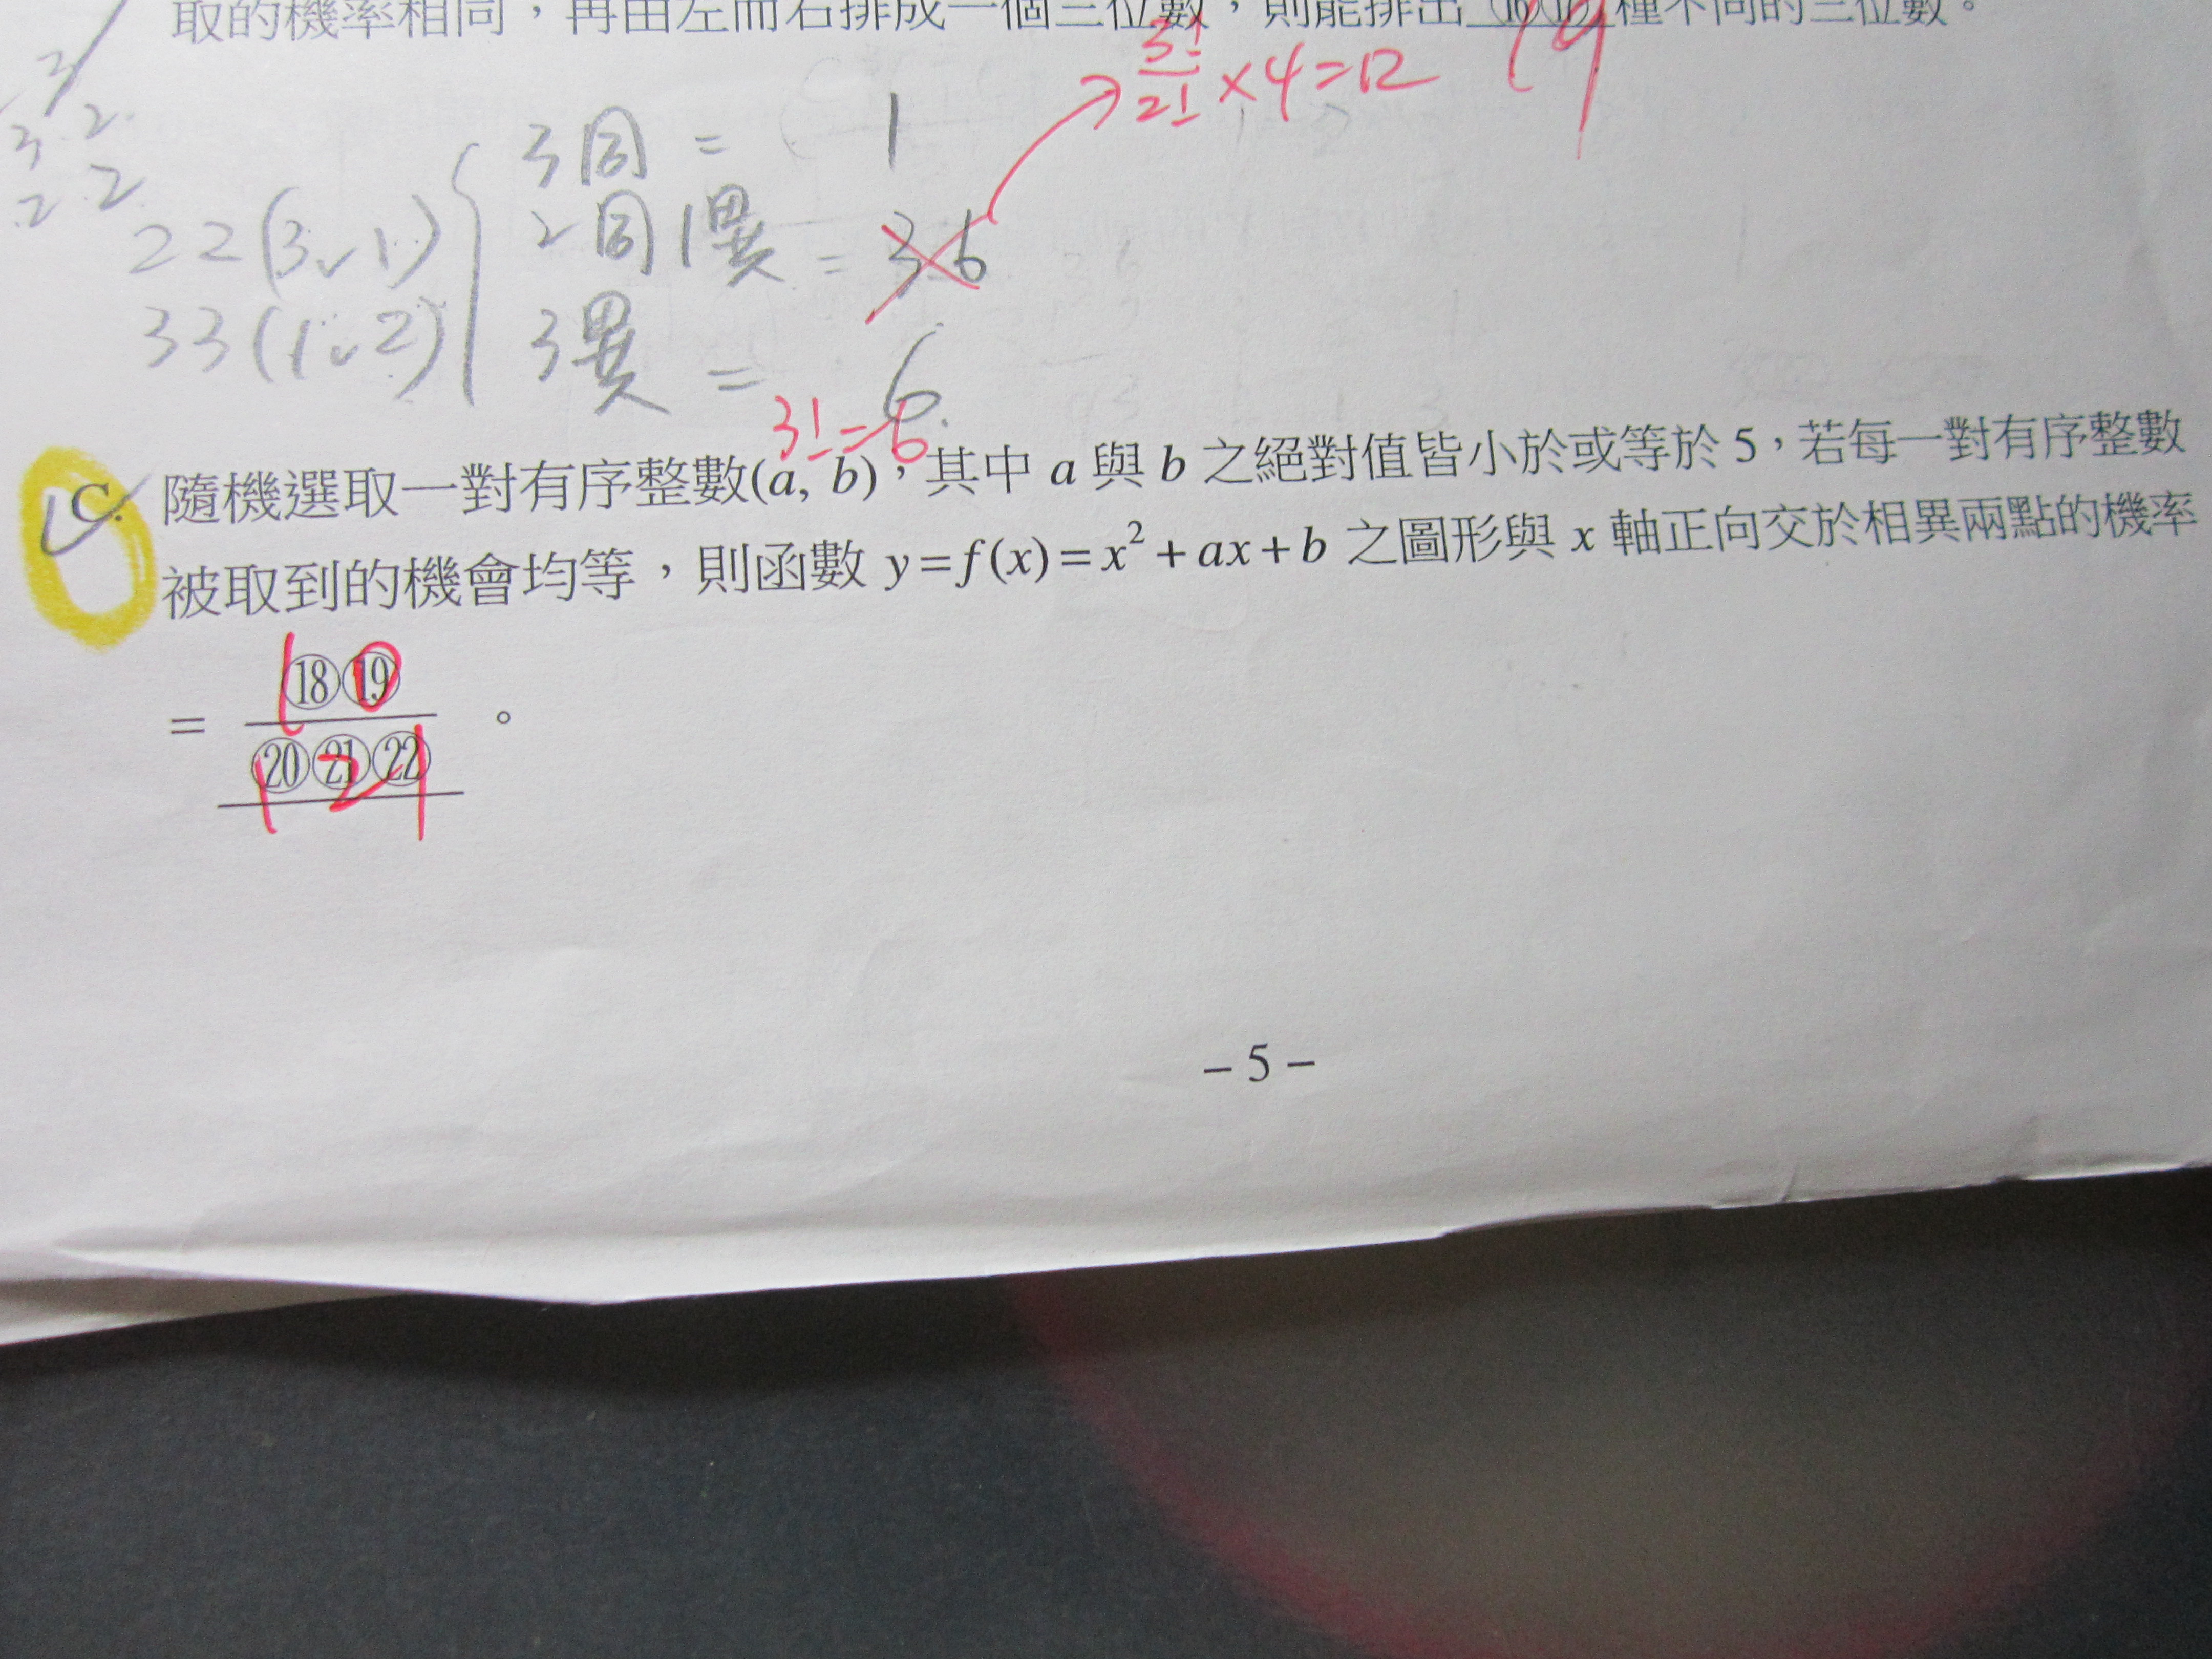 取的機率相同，再由左而右排成一個三位數，則能排出 ⑯⑰ 種不同的三位數。
19
3!/2! × 4 = 12
3
3 2
2 2
3同 = 1
2同1異 = 36
3異 = 6
3! = 6
22(3、1)
33(1、2)
C. 隨機選取一對有序整數(a, b)，其中 a 與 b 之絕對值皆小於或等於 5，若每一對有序整數
被取到的機會均等，則函數 y=f(x)=x²+ax+b 之圖形與 x 軸正向交於相異兩點的機率
= ⑱⑲ / ⑳㉑㉒ 。
10
121
– 5 –